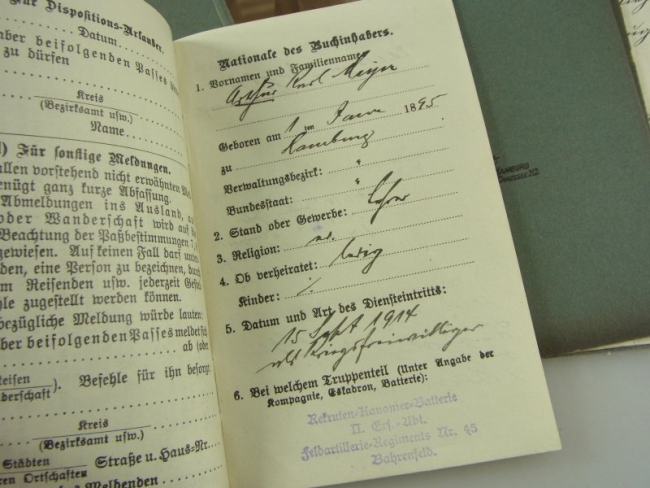 Für Dispositions-Urlauber.
Datum
ber beifolgenden Passes
zu dürfen
Kreis
(Bezirksamt usw.)
Name
) Für sonstige Meldungen.
allen vorstehend nicht erwähnten
enügt ganz kurze Abfassung.
Abmeldungen ins Ausland,
oder Wanderschaft wird auf
Beachtung der Paßbestimmungen 7
gewiesen. Auf keinen Fall darf
den, eine Person zu bezeichnen, durch
m Reisenden usw. jederzeit
hle zugestellt werden können.
bezügliche Meldung würde lauten:
ber beifolgenden Passes meldet sich
ab (oder
Reisen
derschaft). Befehle für ihn besorgt
Kreis
(Bezirksamt usw.)
Städten
ren Ortschaften Straße u. Haus-Nr.
es Meldenden
Nationale des Buchinhabers.
1. Vornamen und Familienname:
Arthur Karl Meyer
Geboren am 1 im Janr 1895
zu Hamburg
Verwaltungsbezirk: "
Bundesstaat: "
2. Stand oder Gewerbe:
3. Religion:
4. Ob verheiratet: ledig
Kinder: ·/.
5. Datum und Art des Diensteintritts:
15 Sept 1914
als Kriegsfreiwilliger
6. Bei welchem Truppenteil (Unter Angabe der
Kompagnie, Eskadron, Batterie):
Rekruten-Kanonier-Batterie
II. Ers.-Abt.
Feldartillerie-Regiments Nr. 45
Bahrenfeld.